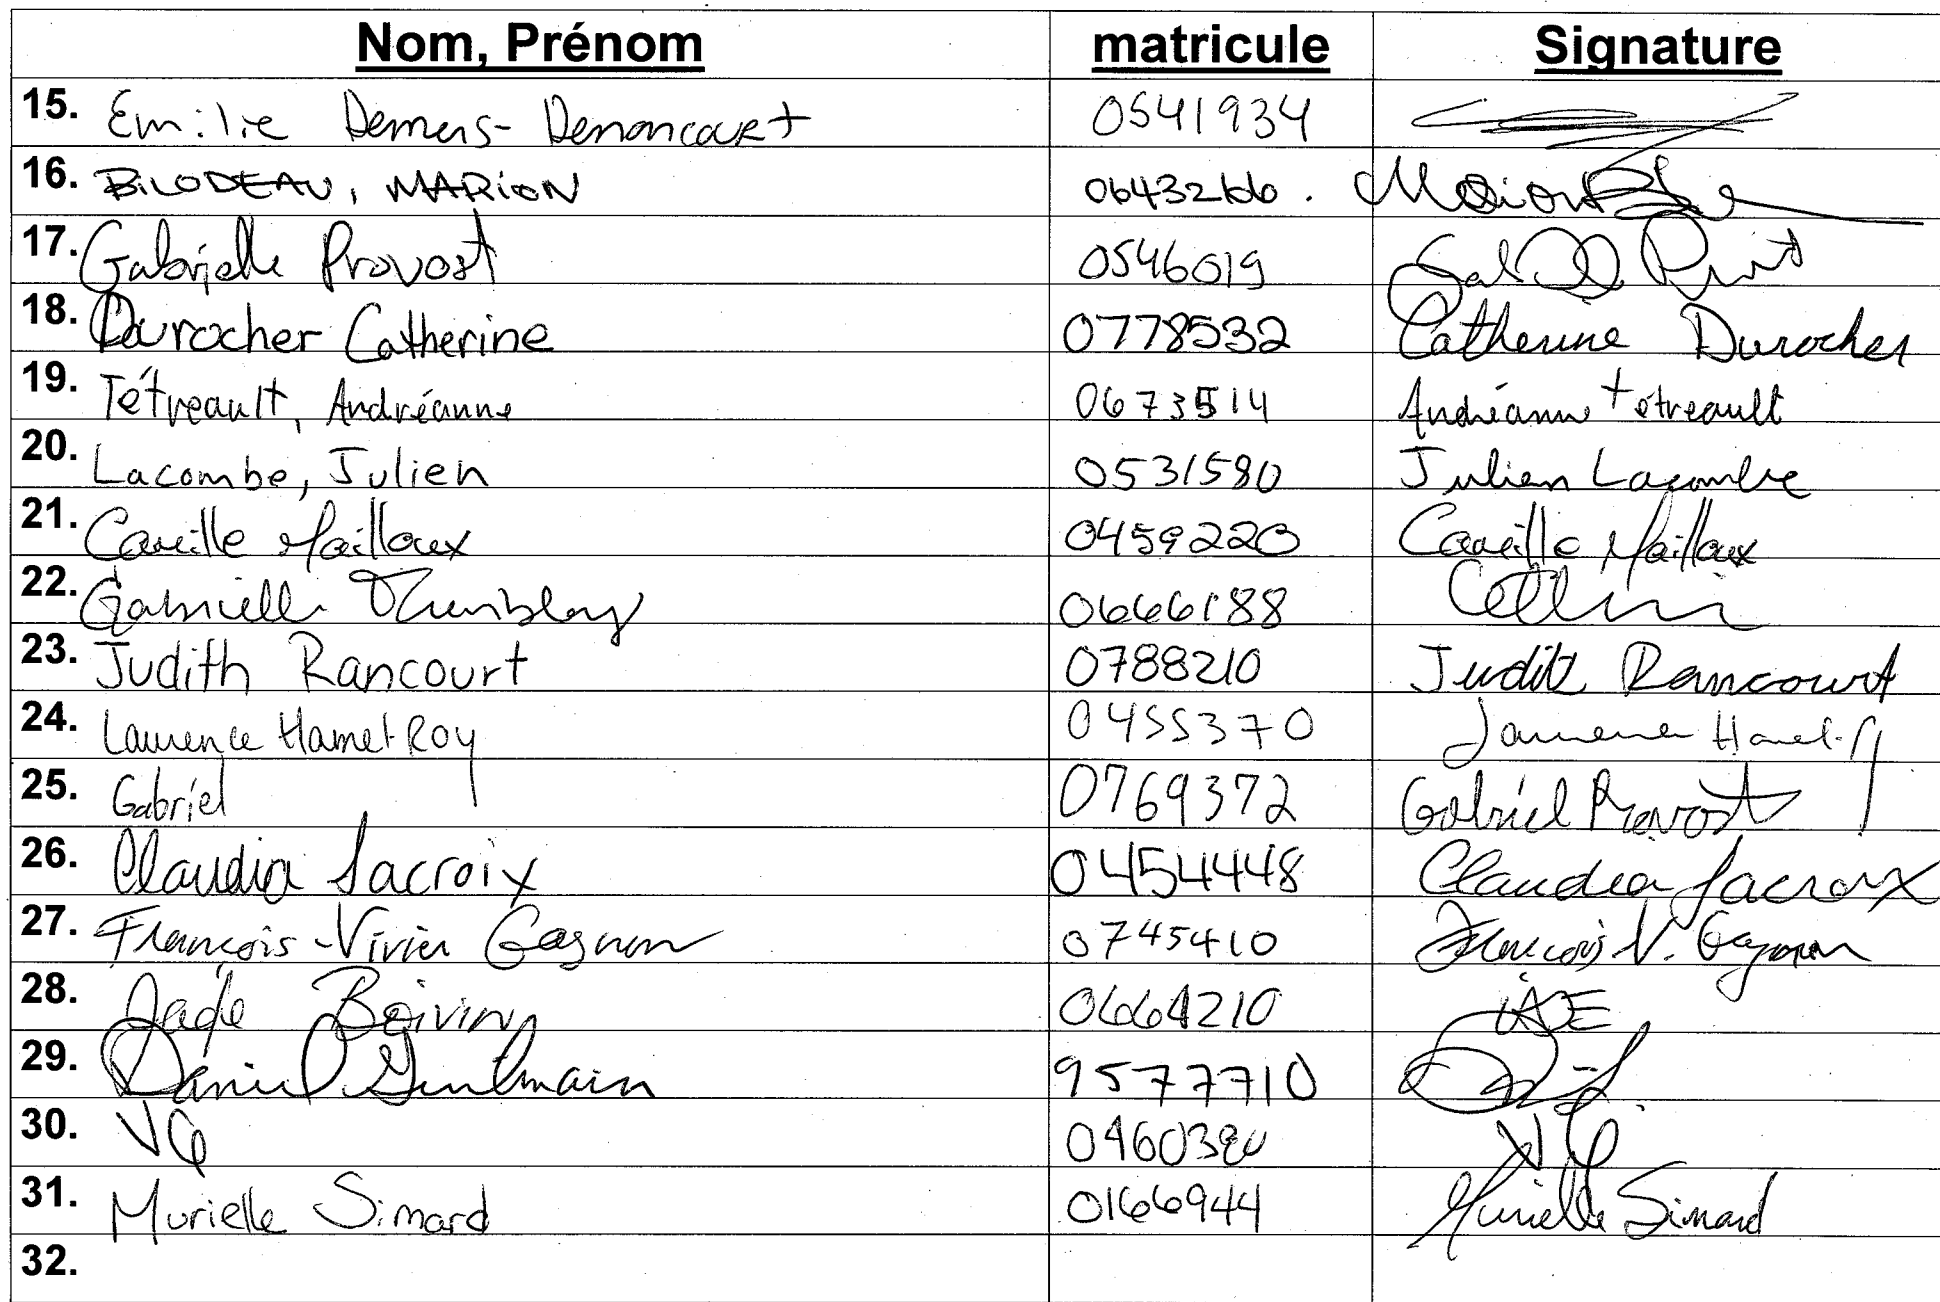 Nom, Prénom matricule Signature
15. Emilie Demers-Denoncourt 0541934
16. BILODEAU, MARION 0643266. Marion
17. Gabrielle Provost 0546019
18. Durocher Catherine 0778532 Catherine Durocher
19. Tétreault, Andréanne 0673514 Andréanne tétreault
20. Lacombe, Julien 0531580 Julien Lacombe
21. Camille Mailloux 0459220 Camille Mailloux
22. Gabrielle Tremblay 0666188
23. Judith Rancourt 0788210 Judith Rancourt
24. Laurence Hamel-Roy 0455370 Laurence Hamel-
25. Gabriel 0769372 Gabriel Provost
26. Claudia Lacroix 0454448 Claudia Lacroix
27. François-Vivier Gagnon 0745410 François V. Gagnon
28. Jade Boivin 0664210
29. Daniel 9577710
30. VG VG
31. Murielle Simard 0166944 Murielle Simard
32.